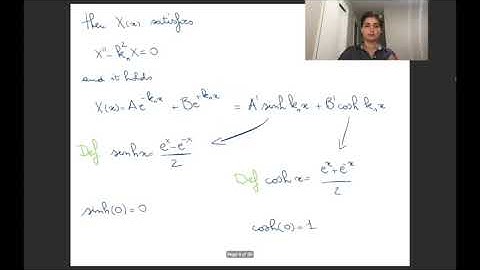 then X(x) satisfies
X'' - k²ₙ X = 0
and it holds
X(x) = A e^{-kₙx} + B e^{+kₙx} = A' sinh kₙx + B' cosh kₙx
Def sinh x = (eˣ - e⁻ˣ)/2
Def cosh x = (eˣ + e⁻ˣ)/2
sinh(0) = 0
cosh(0) = 1